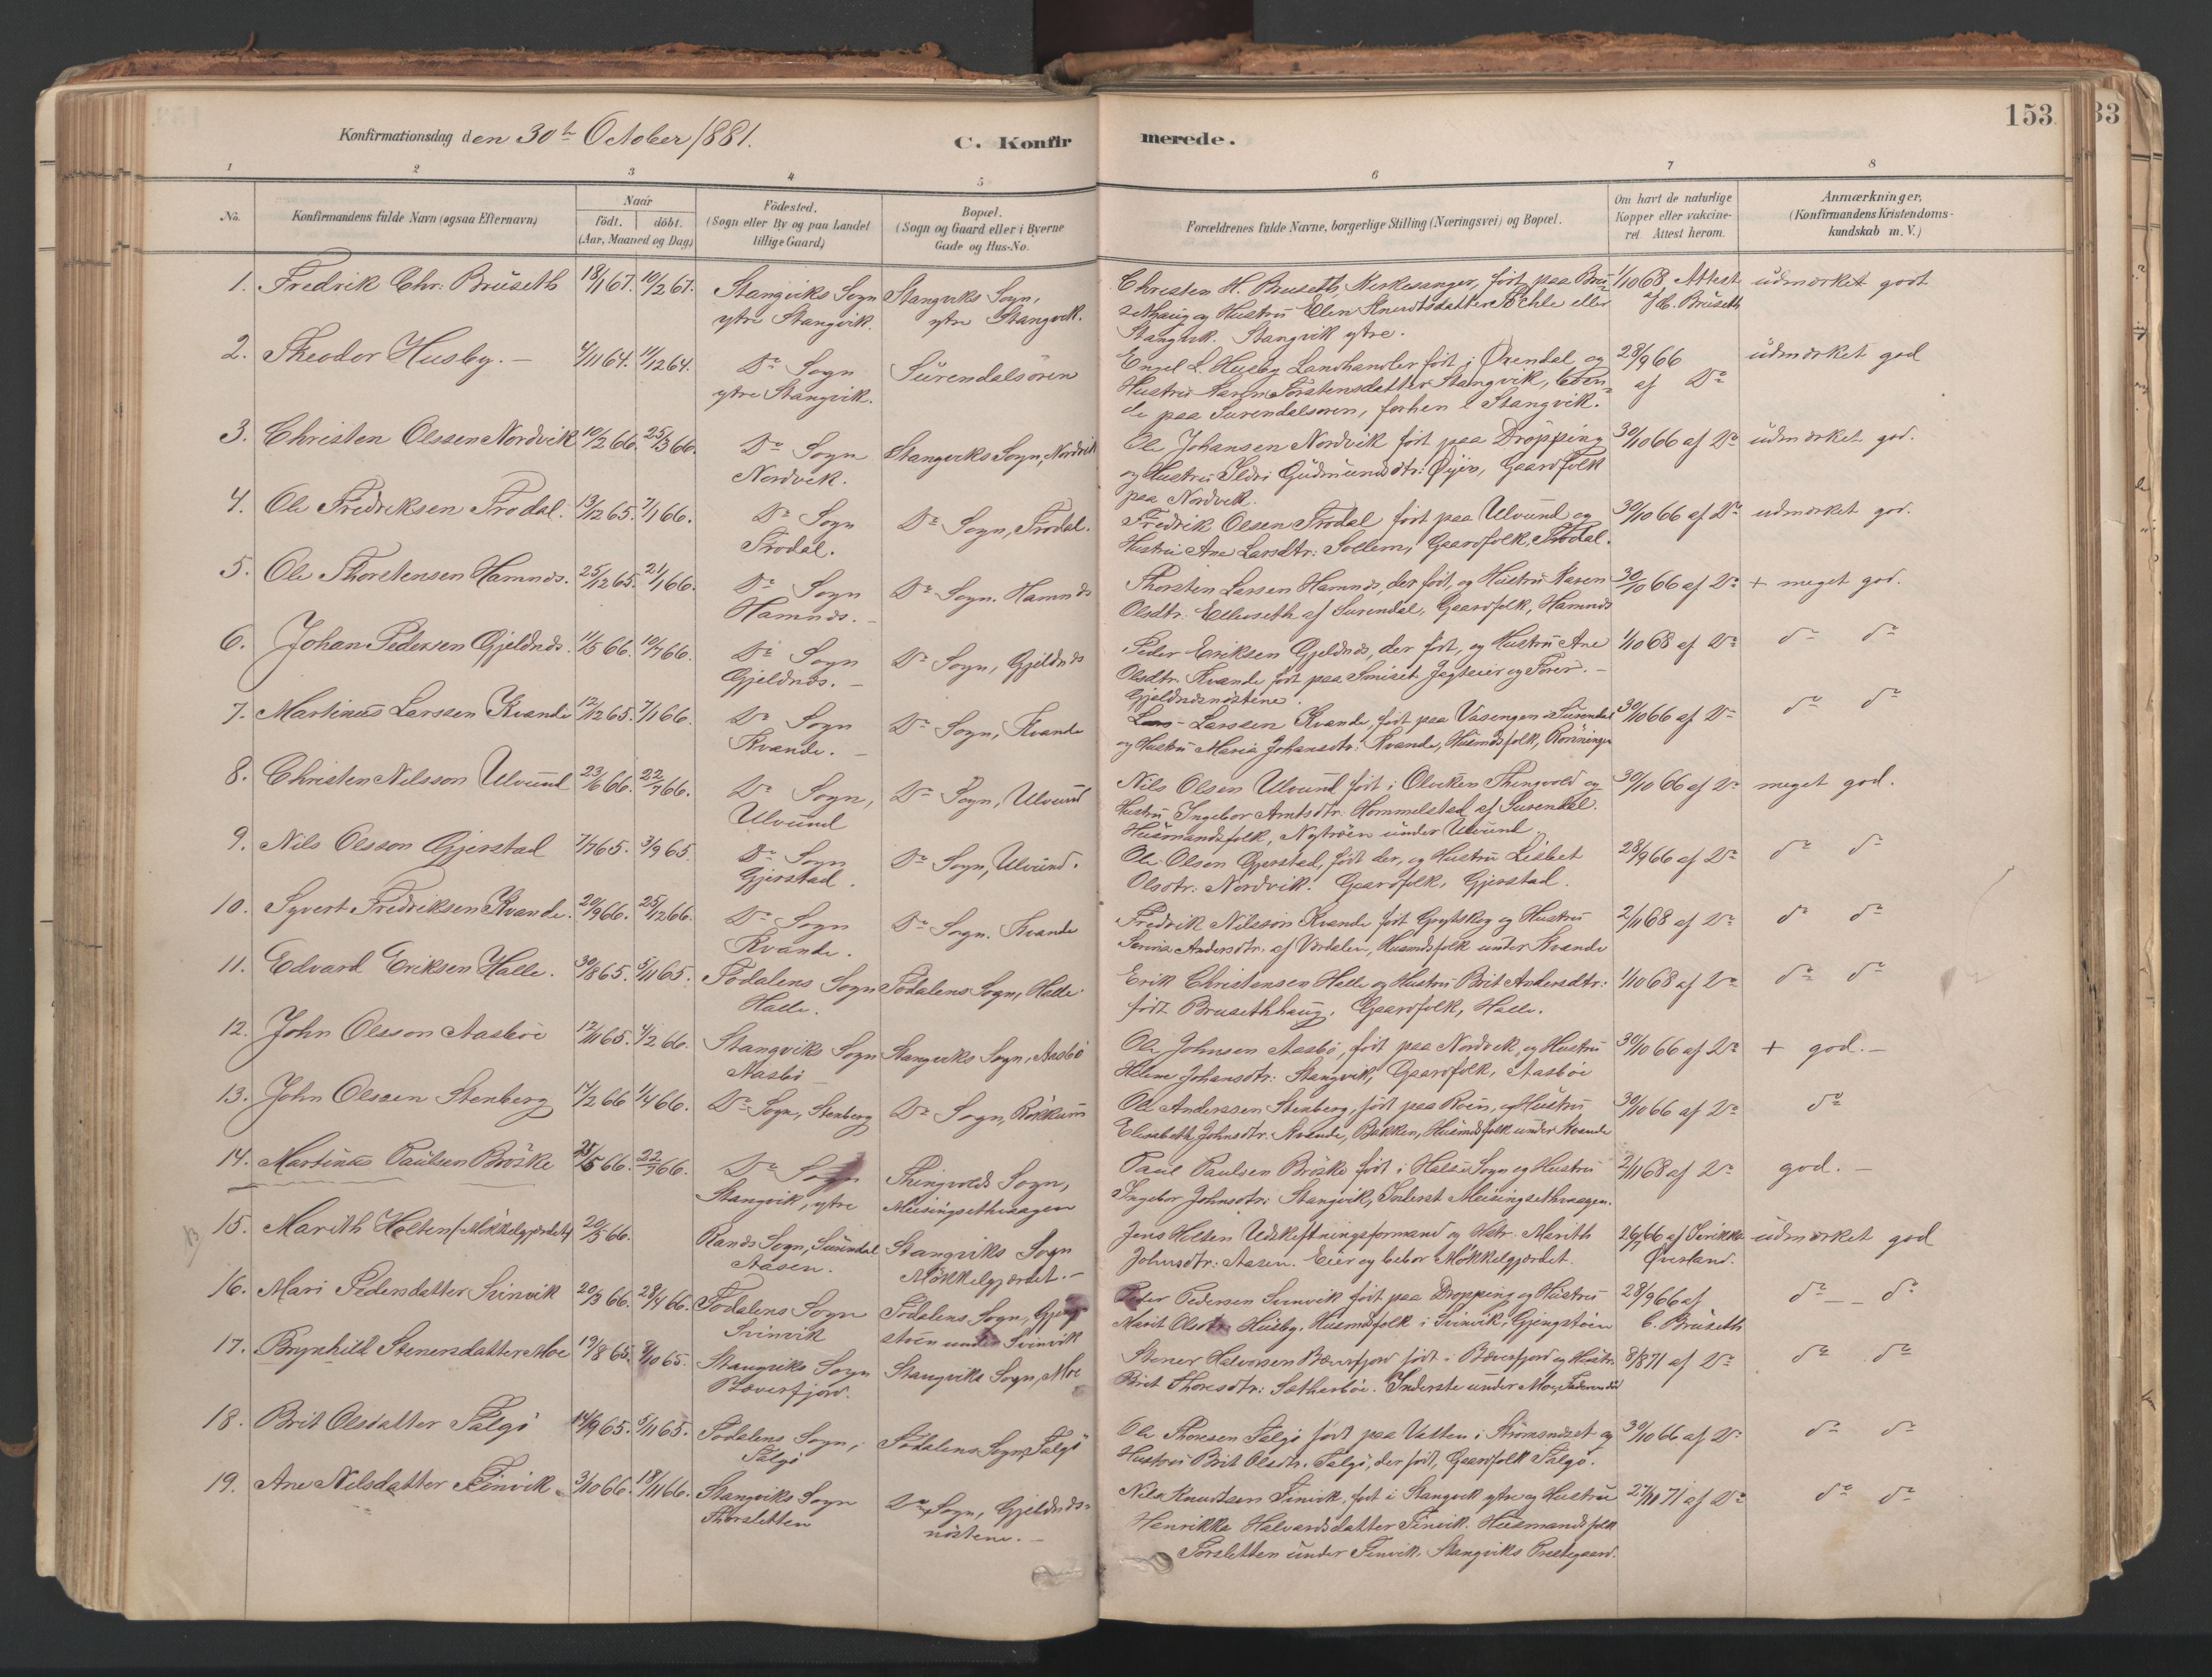 153
33
Konfirmationsdag den 30te October 1881.
C. Konfir
merede.
1 2 3 4 5 6 7 8
No.
Konfirmandens fulde Navn (ogsaa Efternavn)
Naar
födt. döbt.
(Aar, Maaned og Dag)
Födested.
(Sogn eller By og paa Landet
tillige Gaard)
Bopæl.
(Sogn og Gaard eller i Byerne
Gade og Hus-No.
Forældrenes fulde Navne, borgerlige Stilling (Næringsvei) og Bopæl.
Om havt de naturlige
Kopper eller vakcine-
ret. Attest herom.
Anmærkninger,
(Konfirmandens Kristendoms-
kundskab m. V.)
1. Fredrik Chr: Brüseth 18/1 67. 10/2 67. Stangviks Sogn Stangviks Sogn, Christen H. Bruseth, Kirkesanger, født paa Brü- 1/10 68 Attest udmærket godt
ytre Stangvik. ytre Stangvik. sethaug og Hustru Elen Knudtsdatter eller af C. Brüseth
Stangvik. Stangvik ytre.
2. Theodor Husby. 4/11 64. 11/12 64. Do Sogn Sürendalsøren Engel L. Husby Landhandler født i Ørendal og 28/9 66 udmærket god
ytre Stangvik. Hustru Karen Torstensdatter Stangvik, boen- af Do
de paa Surendalsøren, forhen i Stangvik.
3. Christen Olssen Nordvik 10/2 66. 25/3 66. Do Sogn Stangviks Sogn, Nordvik Ole Johansen Nordvik født paa Dröpping 30/10 66 af Do udmærket god.
Nordvik. og Hustru Ildri Gudmundsdtr: Øyer, Gaardfolk
paa Nordvik.
4. Ole Fredriksen Trodal. 13/12 65. 7/1 66. Do Sogn Do Sogn, Trodal. Fredrik Olsen Trodal født paa Ulvund og 30/10 66 af Do udmærket god.
Trodal. Hustru Ane Larsdtr: Sollem, Gaardfolk, Trodal.
5. Ole Thorstensen Hamnes. 25/12 65. 21/1 66. Do Sogn Do Sogn. Hamnes Thorsten Larsen Hamnes, der født, og Hustru Karen 30/10 66 af Do + meget god.
Hamnes. Olsdtr: Ellevseth af Surendal, Gaardfolk, Hamnes
6. Johan Pedersen Gjeldnes. 11/5 66. 10/7 66. Do Sogn Do Sogn, Gjeldnes Peder Eriksen Gjeldnes, der født, og Hustru Ane 1/10 68 af Do do do
Gjeldnes. Olsdtr. Kvande født paa Smiset Jagteier og Fører.
Gjeldnesnøstene.
7. Martinus Larssen Kvande 12/12 65. 7/1 66. Do Sogn Do Sogn, Kvande Lars Larssen Kvande, født paa Vasengen i Surendal 30/10 66 af Do do do
Kvande. og Hustru Maria Johansdtr: Kvande, Husmdsfolk,
8. Christen Nilsson Ulvund 23/6 66. 22/7 66. Do Sogn, Do Sogn, Ulvund Nils Olsen Ulvund født i Thingvold og 30/10 66 af Do meget god.
Ulvund Hustru Ingebor Arntsdtr. Hommelstad af Surendal.
Husmandsfolk, Nytrøen under Ulvund.
9. Nils Olsson Gjerstad 7/7 65. 3/9 65. Do Sogn Do Sogn, Ulvund. Ole Olsen Gjerstad, født der, og Hustru Lisbet 28/9 66 af Do do do
Gjerstad. Olsdtr: Nordvik. Gaardfolk, Gjerstad.
10. Syvert Fredriksen Kvande. 20/9 66. 25/12 66. Do Sogn Do Sogn. Kvande Fredrik Nilsson Kvande født og Hustru 2/11 68 af Do do do
Kvande. Andersdtr. af Vordalen, Husmdsfolk under Kvande
11. Edvard Eriksen Halle. 30/8 65. 5/11 65. Todalens Sogn Todalens Sogn, Halle Erik Christensen Halle og Hustru Brit Andersdtr: 1/10 68 af Do do do
Halle. født Brusethhaug. Gaardfolk, Halle.
12. John Olsson Aasböe 12/11 65. 4/2 66. Stangviks Sogn Stangviks Sogn, Aasbö Ole Johnsen Aasbö, født paa Nordvik, og Hustru 30/10 66 af Do + god.
Aasbö Johansdtr: Stangvik, Gaardfolk, Aasböe
13. John Olssen Stenberg 17/2 66 1/4 66. Do Sogn, Stenberg Do Sogn, Røkkum Ole Anderssen Stenberg, født paa Røen, og Hustru 30/10 66 af Do do
Elisabeth Johnsdtr: Kvande, Bakken, Husmdsfolk under Kvande
14. Martinus Paulsen Bröske 25/5 66. 22/7 66. Do Sogn Thingvolds Sogn, Paul Paulsen Bröske født i Halse Sogn og Hustru 2/11 68 af Do god.
Stangvik, ytre Meisingsethvaagen Ingebor Johnsdtr: Stangvik, Inderst Meisingsethvaagen.
15. Marith Holten (Mökkelgjerdet) 20/5 66. Rands Sogn, Surendal Stangviks Sogn Jens Holten Udskiftningsformand og Hstr. Marith 26/7 66 af udmærket god
Aasen. Mökkelgjerdet. Johnsdtr: Aasen. Eier og bebor Mökkelgjærdet. Øverland.
16. Mari Pedersdatter Svinvik 20/3 66. 28/4 66. Todalens Sogn Todalens Sogn, Peder Pedersen Svinvik født paa Dröpping og Hustru 28/9 66 af do do
Svinvik under Svinvik Marit Olsdtr Husby. Husmdsfolk i Svinvik, C. Brüseth
17. Brynhild Stenersdatter Moe 19/8 65. 8/10 65. Stangviks Sogn Stangviks Sogn, Moe Stener Halvorsen Bæverfjord født i Bæverfjord og Hustru 8/8 71 af Do do do
Bæverfjord. Brit Thoresdtr: Sætherböe. Inderste under Moe,
18. Brit Olsdatter Talgö 14/9 65. 5/11 65. Todalens Sogn, Todalens Sogn, Talgö Ole Thoresen Talgö født paa Vatten i Strömsnæset og 30/10 66 af Do do do
Talgö Hustru Brit Olsdtr. Talgö, der født, Gaardfolk Talgö.
19. Ane Nilsdatter Tinvik 3/10 66. 18/11 66. Stangviks Sogn Do Sogn, Gjeldnes- Nils Knudtsen Tinvik, født i Stangvik ytre og Hustru 27/10 71 af Do do do
Thorsletten nöstene. Henrikka Halvardsdatter Tinvik. Husmandsfolk
Torsletten under Tinvik, Stangviks Prestegaard.